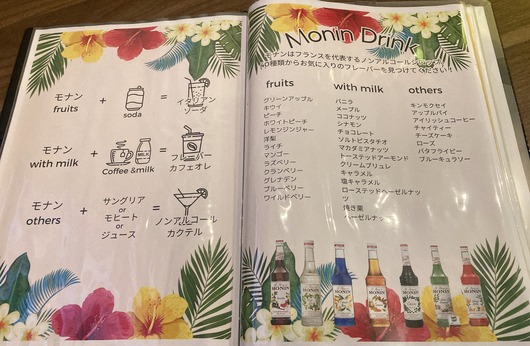 モナン
fruits
+
soda
=
イタリアン
ソーダ
モナン
with milk
+
Coffee &milk
=
フレーバー
カフェオレ
モナン
others
+
サングリア
or
モヒート
or
ジュース
=
ノンアルコール
カクテル
Monin Drink
モナンはフランスを代表するノンアルコールシロップ
種類からお気に入りのフレーバーを見つけてください!
fruits
グリーンアップル
キウイ
ピーチ
ホワイトピーチ
レモンジンジャー
洋梨
ライチ
マンゴー
ラズベリー
クランベリー
グレナデン
ブルーベリー
ワイルドベリー
with milk
バニラ
メープル
ココナッツ
シナモン
チョコレート
ソルトピスタチオ
マカダミアナッツ
トーステッドアーモンド
クリームブリュレ
キャラメル
塩キャラメル
ローステッドヘーゼルナッ
ツ
焼き栗
ヘーゼルナッツ
others
キンモクセイ
アップルパイ
アイリッシュコーヒー
チャイティー
チーズケーキ
ローズ
バタフライピー
ブルーキュラソー
MONIN
MONIN
MONIN
MONIN
MONIN
MONIN
MONIN